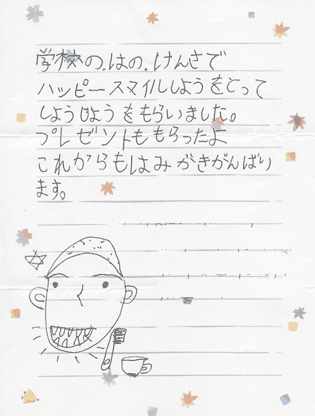 学校の.はの.けんさで
ハッピースマイルしようをとって
しょうじょうをもらいました。
プレゼントももらったよ
これからもはみがきがんばり
ます。